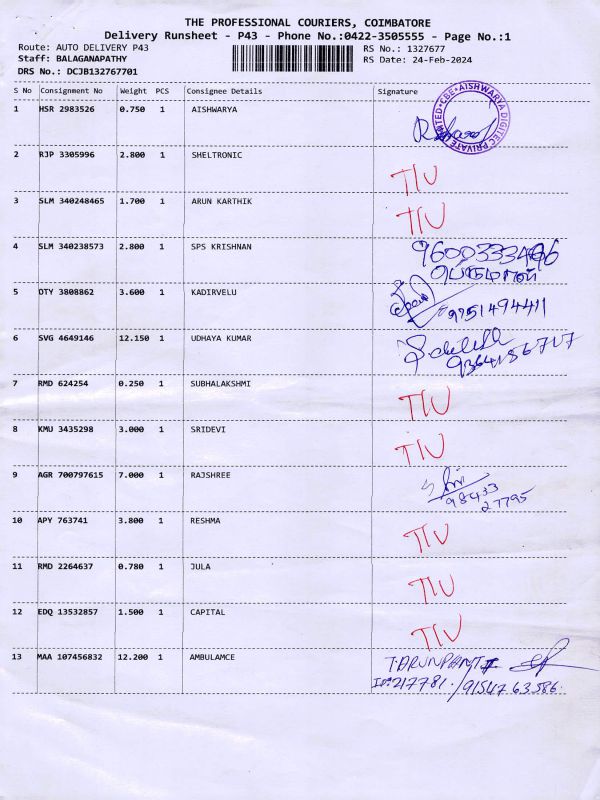 THE PROFESSIONAL COURIERS, COIMBATORE
Delivery Runsheet - P43 - Phone No.:0422-3505555 - Page No.:1
Route: AUTO DELIVERY P43 RS No.: 1327677
Staff: BALAGANAPATHY RS Date: 24-Feb-2024
DRS No.: DCJB132767701
S No Consignment No Weight PCS Consignee Details Signature
CBE • AISHWARYA DIGITEC PRIVATE LIMITED
1 HSR 2983526 0.750 1 AISHWARYA
2 RJP 3305996 2.800 1 SHELTRONIC
TIU
3 SLM 340248465 1.700 1 ARUN KARTHIK
TIU
4 SLM 340238573 2.800 1 SPS KRISHNAN
5 OTY 3808862 3.600 1 KADIRVELU
9751494411
6 SVG 4649146 12.150 1 UDHAYA KUMAR
7 RMD 624254 0.250 1 SUBHALAKSHMI
TIU
8 KMU 3435298 3.000 1 SRIDEVI
TIU
9 AGR 700797615 7.000 1 RAJSHREE
98433
27795
10 APY 763741 3.800 1 RESHMA
TIU
11 RMD 2264637 0.780 1 JULA
TIU
12 EDQ 13532857 1.500 1 CAPITAL
TIU
13 MAA 107456832 12.200 1 AMBULAMCE
ID:217781. / 9154763586.